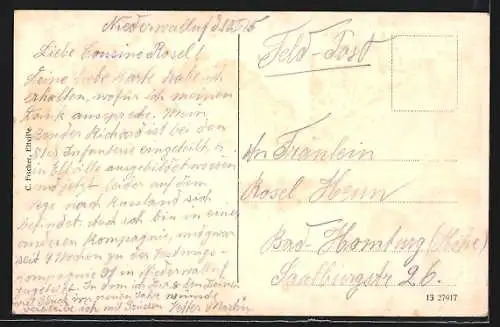 Niederwalluf
Liebe Cousine Rosel!
Deine liebe Karte habe ich
erhalten, wofür ich meinen
Dank ausspreche. Mein
Bruder Richard ist bei den
Infanterie eingeteilt
in Eltville ausgebildet worden
und jetzt leider auf dem
Wege nach Russland sich
befindet. Doch ich bin in einer
anderen Kompagnie, und zwar
seit 4 Wochen zu der
kompagnie in Niederwalluf
zugeteilt. In dem ich
im neuen Jahre wünsche
ich mit Grüssen Vetter Martin
C. Fischer, Eltville.
Feld-Post
An Fräulein
Rosel Henn
Bad-Homburg (Höhe)
Saalburgstr 26.
13 27917